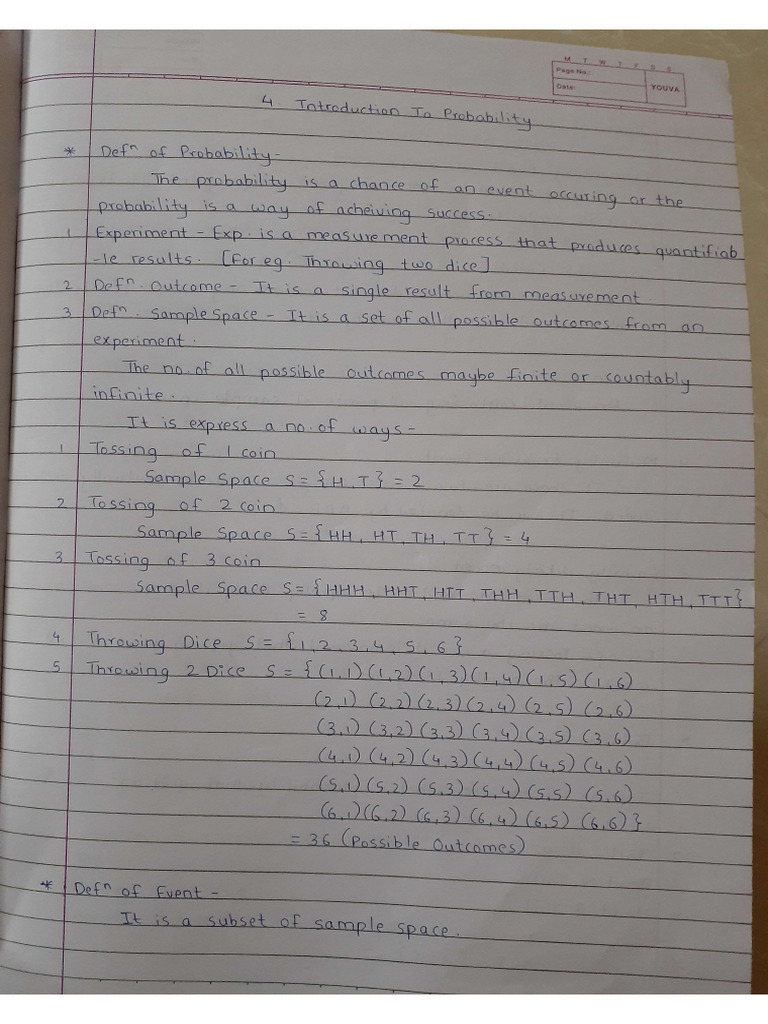 M T W T F S S
Page No.:
Date:
YOUVA
4. Introduction To Probability
* Defⁿ of Probability-
The probability is a chance of an event occuring or the
probability is a way of acheiving success.
1 Experiment - Exp. is a measurement process that produces quantifiab
-le results. [For eg. Throwing two dice]
2 Defⁿ. Outcome - It is a single result from measurement.
3 Defⁿ. Sample Space - It is a set of all possible outcomes from an
experiment.
The no. of all possible outcomes maybe finite or countably
infinite.
It is express a no. of ways-
1 Tossing of 1 coin
Sample Space S = {H, T} = 2
2 Tossing of 2 coin
Sample Space S = {HH, HT, TH, TT} = 4
3 Tossing of 3 coin
Sample Space S = {HHH, HHT, HTT, THH, TTH, THT, HTH, TTT}
= 8
4 Throwing Dice S = {1, 2, 3, 4, 5, 6}
5 Throwing 2 Dice S = {(1,1)(1,2)(1,3)(1,4)(1,5)(1,6)
(2,1) (2,2)(2,3)(2,4)(2,5)(2,6)
(3,1)(3,2)(3,3)(3,4)(3,5)(3,6)
(4,1)(4,2)(4,3)(4,4)(4,5)(4,6)
(5,1)(5,2)(5,3)(5,4)(5,5)(5,6)
(6,1)(6,2)(6,3)(6,4)(6,5)(6,6)}
= 36 (Possible Outcomes)
* Defⁿ of Event -
It is a subset of sample space.